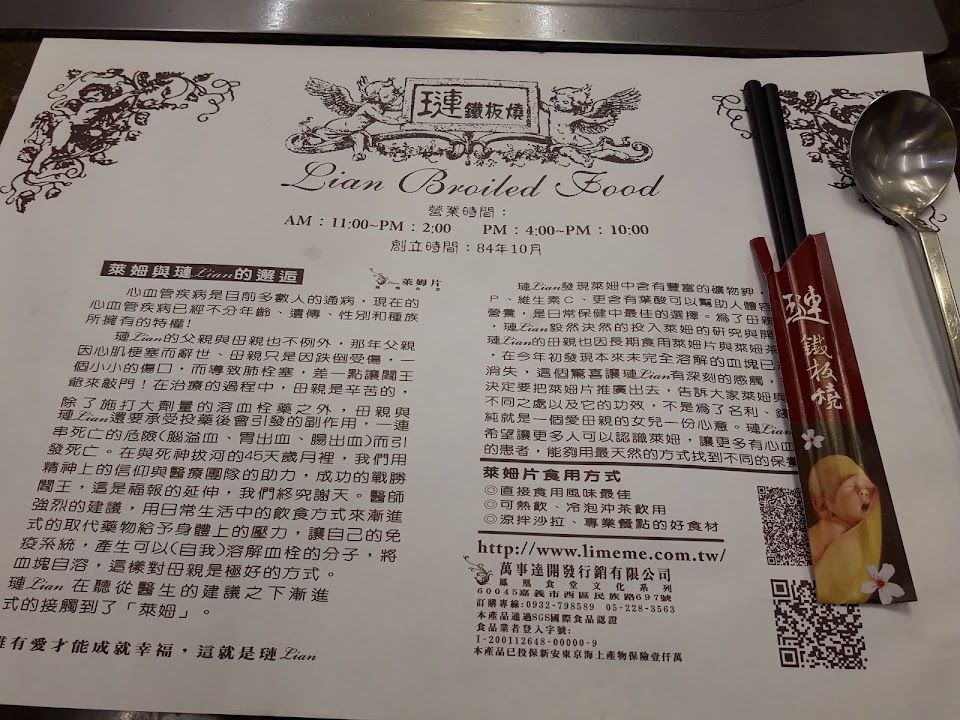 璉 鐵板燒
Lian Broiled Food
營業時間：
AM：11:00~PM：2:00 PM：4:00~PM：10:00
創立時間：84年10月
萊姆與璉Lian的邂逅
萊姆片
心血管疾病是目前多數人的通病，現在的
心血管疾病已經不分年齡、遺傳、性別和種族
所擁有的特權!
璉Lian的父親與母親也不例外，那年父親
因心肌梗塞而辭世、母親只是因跌倒受傷，一
個小小的傷口，而導致肺栓塞，差一點讓閻王
爺來敲門！在治療的過程中，母親是辛苦的，
除了施打大劑量的溶血栓藥之外，母親與
璉Lian還要承受投藥後會引發的副作用，一連
串死亡的危險(腦溢血、胃出血、腸出血)而引
發死亡。在與死神拔河的45天歲月裡，我們用
精神上的信仰與醫療團隊的助力，成功的戰勝
閻王，這是福報的延伸，我們終究謝天。醫師
強烈的建議，用日常生活中的飲食方式來漸進
式的取代藥物給予身體上的壓力，讓自己的免
疫系統，產生可以(自我)溶解血栓的分子，將
血塊自溶，這樣對母親是極好的方式。
璉Lian在聽從醫生的建議之下漸進
式的接觸到了「萊姆」。
有愛才能成就幸福，這就是璉Lian
璉Lian發現萊姆中含有豐富的礦物鉀，
P、維生素C、更含有葉酸可以幫助人體
營養，是日常保健中最佳的選擇。為了母親
，璉Lian毅然決然的投入萊姆的研究與開
璉Lian的母親也因長期食用萊姆片與萊姆茶
，在今年初發現本來未完全溶解的血塊已
消失，這個驚喜讓璉Lian有深刻的感觸，
決定要把萊姆片推廣出去，告訴大家萊姆與
不同之處以及它的功效，不是為了名利、錢
純就是一個愛母親的女兒一份心意。璉Lian
希望讓更多人可以認識萊姆，讓更多有心血
的患者，能夠用最天然的方式找到不同的保養
萊姆片食用方式
◎直接食用風味最佳
◎可熱飲、冷泡沖茶飲用
◎涼拌沙拉、專業餐點的好食材
http://www.limeme.com.tw/
萬事達開發行銷有限公司
鳳凰食堂文化系列
60045嘉義市西區民族路697號
訂購專線:0932-798589 05-228-3563
本產品通過SGS國際食品認證
食品業者登入字號:
I-200112648-00000-9
本產品已投保新安東京海上產物保險壹仟萬
璉 鐵板燒